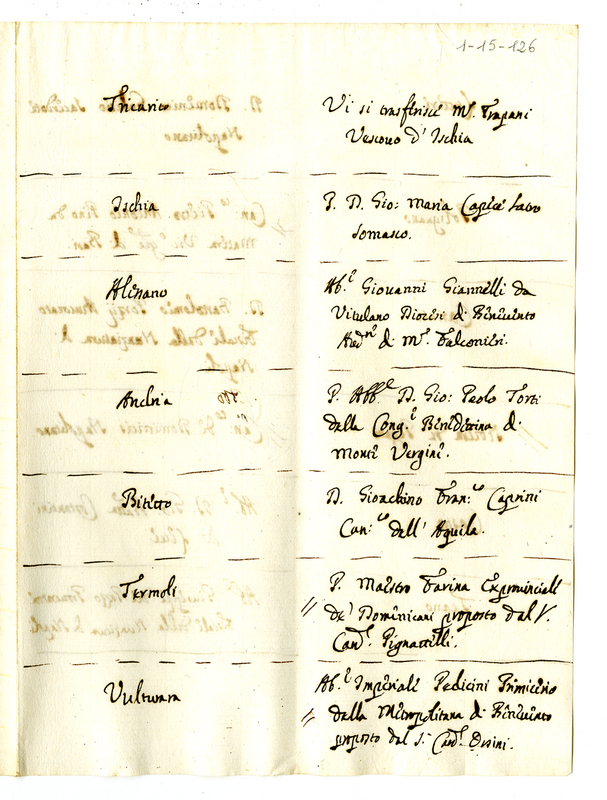 1-15-126
Tricarico
Vi si trasferisce Mr. Trapani
Vescovo d' Ischia
Ischia
P. D. Gio: Maria Capece
Somasco.
Alesano
Ab.e Giovanni Giannelli da
Vitulano Diocesi di Benevento
Aud.re di Mr. Falconieri.
Andria
P. Abb.e D. Gio: Paolo Torti
della Cong.e Benedettina di
Monte Vergine.
Bitetto
D. Gioachino Fran.co
Can.co dell' Aquila.
Termoli
P. Maestro Farina Exprovinciale
// de' Dominicani proposto dal V.
Card. Pignattelli.
Vulturara
Ab.e Imperiale Pedicini Primicerio
// della Metropolitana di Benevento
proposto dal S. Card. Orsini.